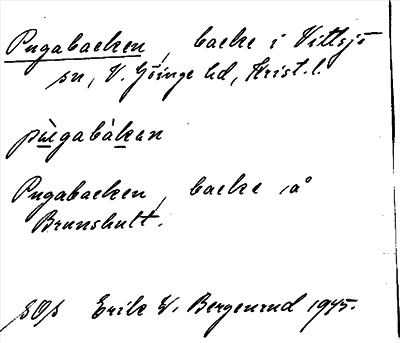 Pugabacken, backe i Vittsjö
sn, V. Göinge hd, Krist. l.
pùgabàkan
Pugabacken, backe å
Brunshult.
Erik W. Bergenrud 1945.